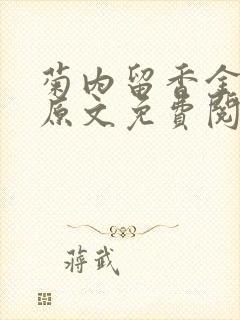 菊内留香全
原文免费阅
蒋武